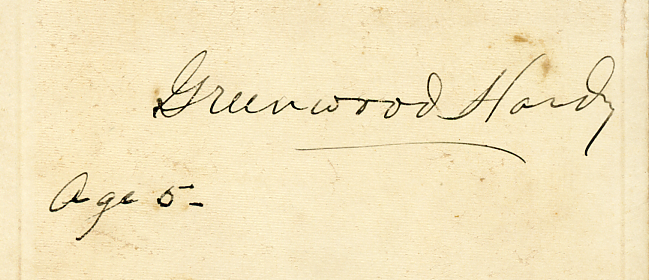 Greenwood Hardy
Age 5-